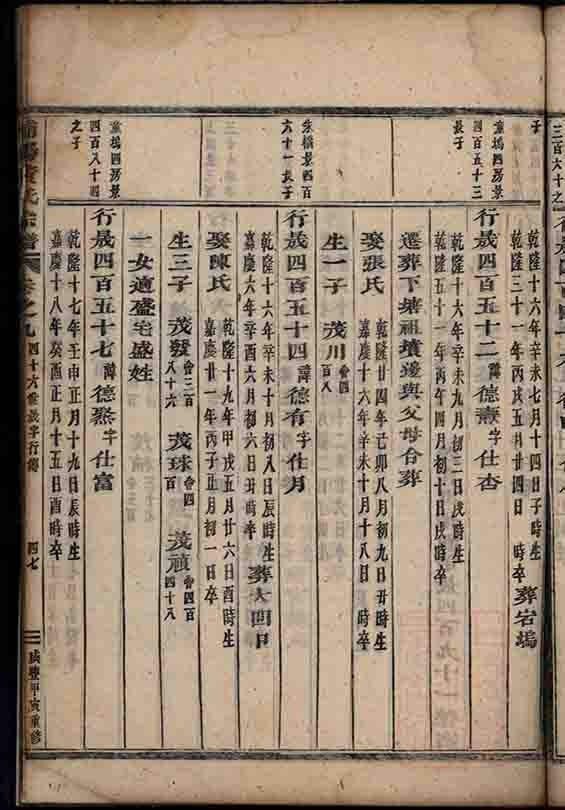 三百六十之
子
乾隆十六年辛未七月十四日子時生
乾隆三十一年丙戌三月廿四日 時卒 葬宕塢
童塢四房景
四百五十三
長子
行晟四百五十二諱德憲字仕杏
乾隆十六年辛未九月初三日戌時生
乾隆五十一年丙午四月初十日戌時卒
遷葬下塘祖墳邊與父母合葬
娶張氏
乾隆廿四年己卯八月初九日丑時生
嘉慶十六年辛未十月十八日 時卒
生一子 茂川 會四百八
朱橋景四百
六十一長子
行晟四百五十四諱德有字仕月
乾隆十六年辛未十月初八日辰時生
嘉慶六年辛酉六月初六日丑時卒 葬大四日
娶陳氏
乾隆十九年甲戌五月廿六日酉時生
嘉慶廿一年丙子正月初一日卒
生三子 茂發 會三百八十六 茂球 會四百 茂禎 會四百四十八
一女適盛宅盛姓
童塢四房景
四百八十四
之子
行晟四百五十七諱德聚字仕富
乾隆十七年壬申正月十九日辰時生
嘉慶十八年癸酉正月十五日酉時卒
氏宗譜 卷之九 四十六世晟字行傳 四七 咸豐甲寅重修